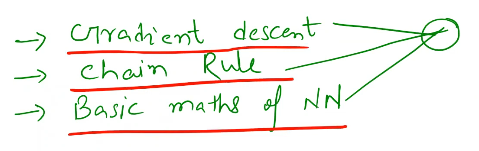 → Gradient descent
→ chain Rule
→ Basic maths of NN